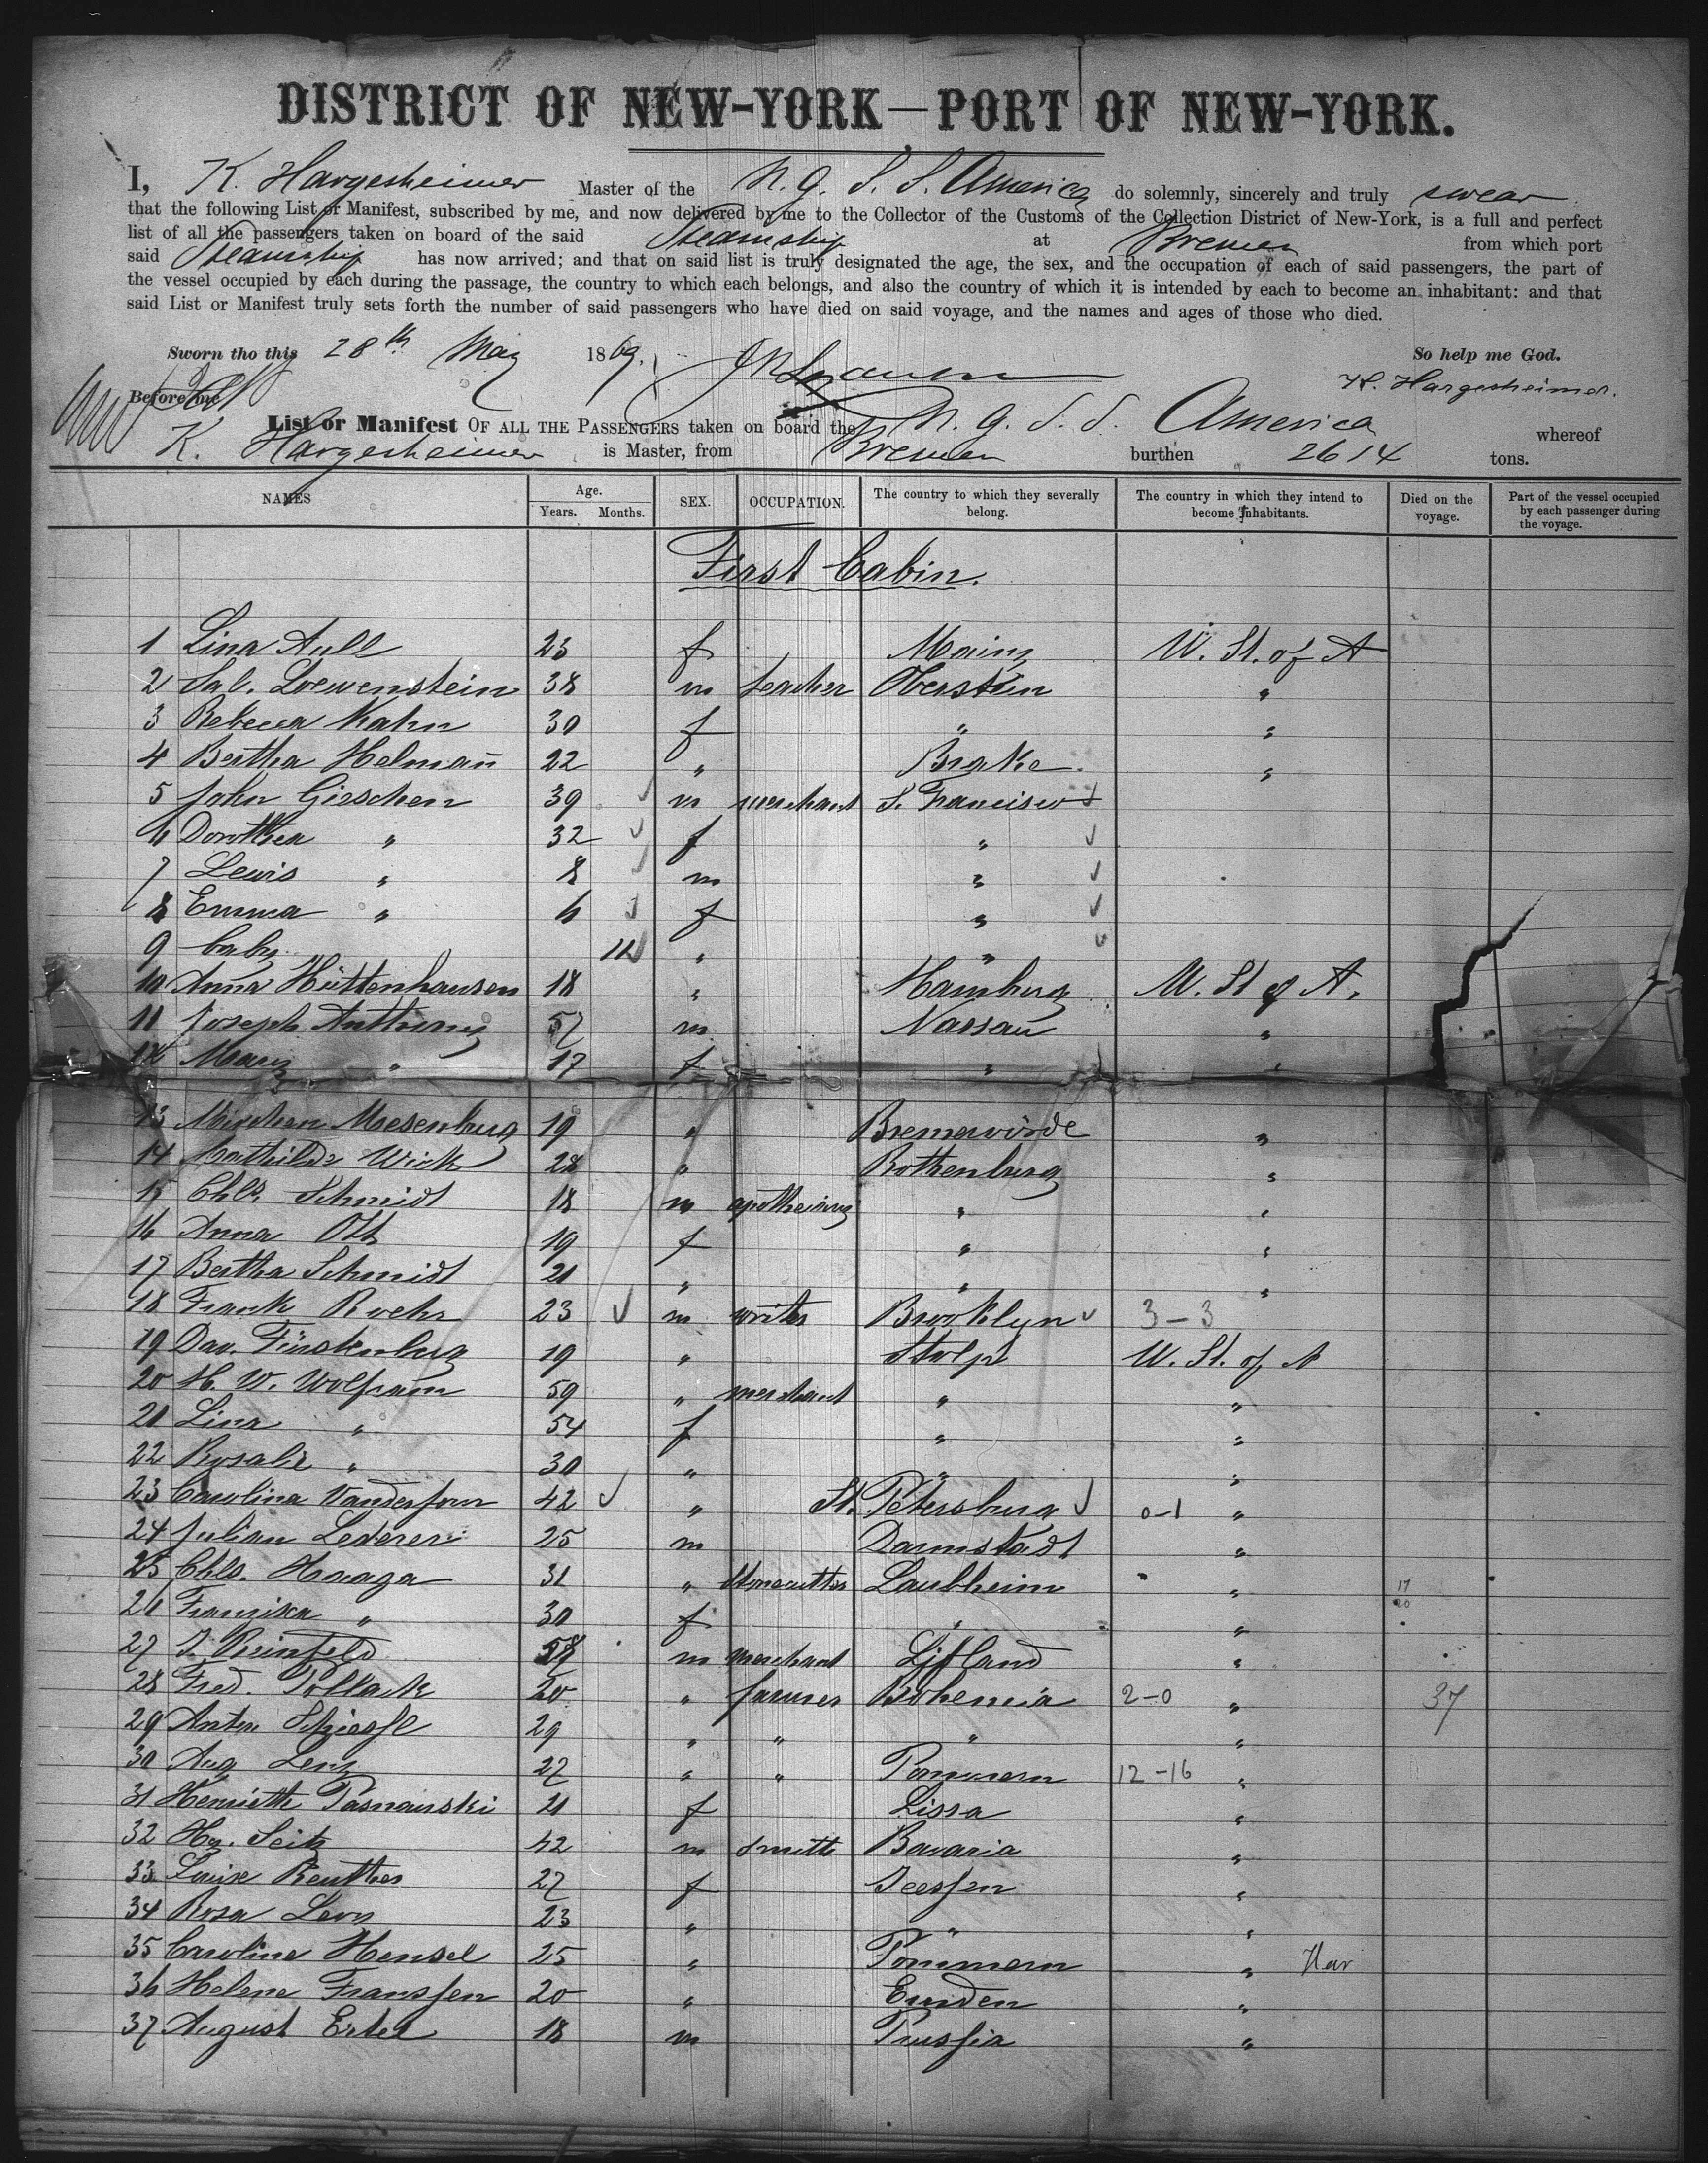 DISTRICT OF NEW-YORK—PORT OF NEW-YORK.
I, K. Hargesheimer Master of the N. G. S. S. America do solemnly, sincerely and truly swear
that the following List or Manifest, subscribed by me, and now delivered by me to the Collector of the Customs of the Collection District of New-York, is a full and perfect
list of all the passengers taken on board of the said Steamship at Bremen from which port
said Steamship has now arrived; and that on said list is truly designated the age, the sex, and the occupation of each of said passengers, the part of
the vessel occupied by each during the passage, the country to which each belongs, and also the country of which it is intended by each to become an inhabitant: and that
said List or Manifest truly sets forth the number of said passengers who have died on said voyage, and the names and ages of those who died.
Sworn tho this 28th May 1869. So help me God.
Before me K. Hargesheimer.
List or Manifest OF ALL THE PASSENGERS taken on board the N. G. S. S. America whereof
K. Hargesheimer is Master, from Bremen burthen 2614 tons.
NAMES Age. Years. Months. SEX. OCCUPATION. The country to which they severally belong. The country in which they intend to become Inhabitants. Died on the voyage. Part of the vessel occupied by each passenger during the voyage.
First Cabin.
1 Lina Aull 23 f Mainz U. St. of A
2 Sal. Loewenstein 38 m teacher Oberstein "
3 Rebecca Kahn 30 f " "
4 Bertha Helmañ 22 " Brake "
5 John Gieschen 39 m merchant S. Francisco
6 Dorothea " 32 f "
7 Lewis " 8 m "
8 Emma " 6 f "
9 baby 11 " "
10 Anna Hüttenhausen 18 " Hamburg U. St of A.
11 Joseph Anthony 57 m Nassau "
12 Mary " 17 f " "
13 Meschen Mesenburg 19 " Bremervörde "
14 Mathilde Wick 28 " Rothenburg "
15 Chls. Schmidt 18 m " "
16 Anna Ott 19 f " "
17 Bertha Schmidt 21 " " "
18 Frank Roehr 23 m writer Brooklyn 3-3
19 Dav. Fürstenberg 19 " Stolp U. St. of A
20 H. W. Wolfram 59 " merchant " "
21 Lina " 54 f " "
22 Rosalie " 30 " " "
23 Carolina Vanderfour 42 " St. Petersburg 0-1 "
24 Julian Lederer 25 m Darmstadt "
25 Chls. Haaga 31 " Stonecutter Laubheim " 17
26 Franziska " 30 f " " 20
27 J. Reinfeld m merchant Lifland "
28 Fred. Pollack 20 " farmer Bohemia 2-0 " 37
29 Anton 29 " " " "
30 Aug Lenz 27 " " Pommern 12-16 "
31 Henrieth Posnanski 21 f Lissa "
32 Hy. Seitz 42 m smith Bavaria "
33 Louise Reuther 27 f "
34 Rosa Levy 23 " " "
35 Caroline Hensel 25 " Pommern " Har
36 Helene Franssen 20 " Emden "
37 August Ertel 18 m Prussia "